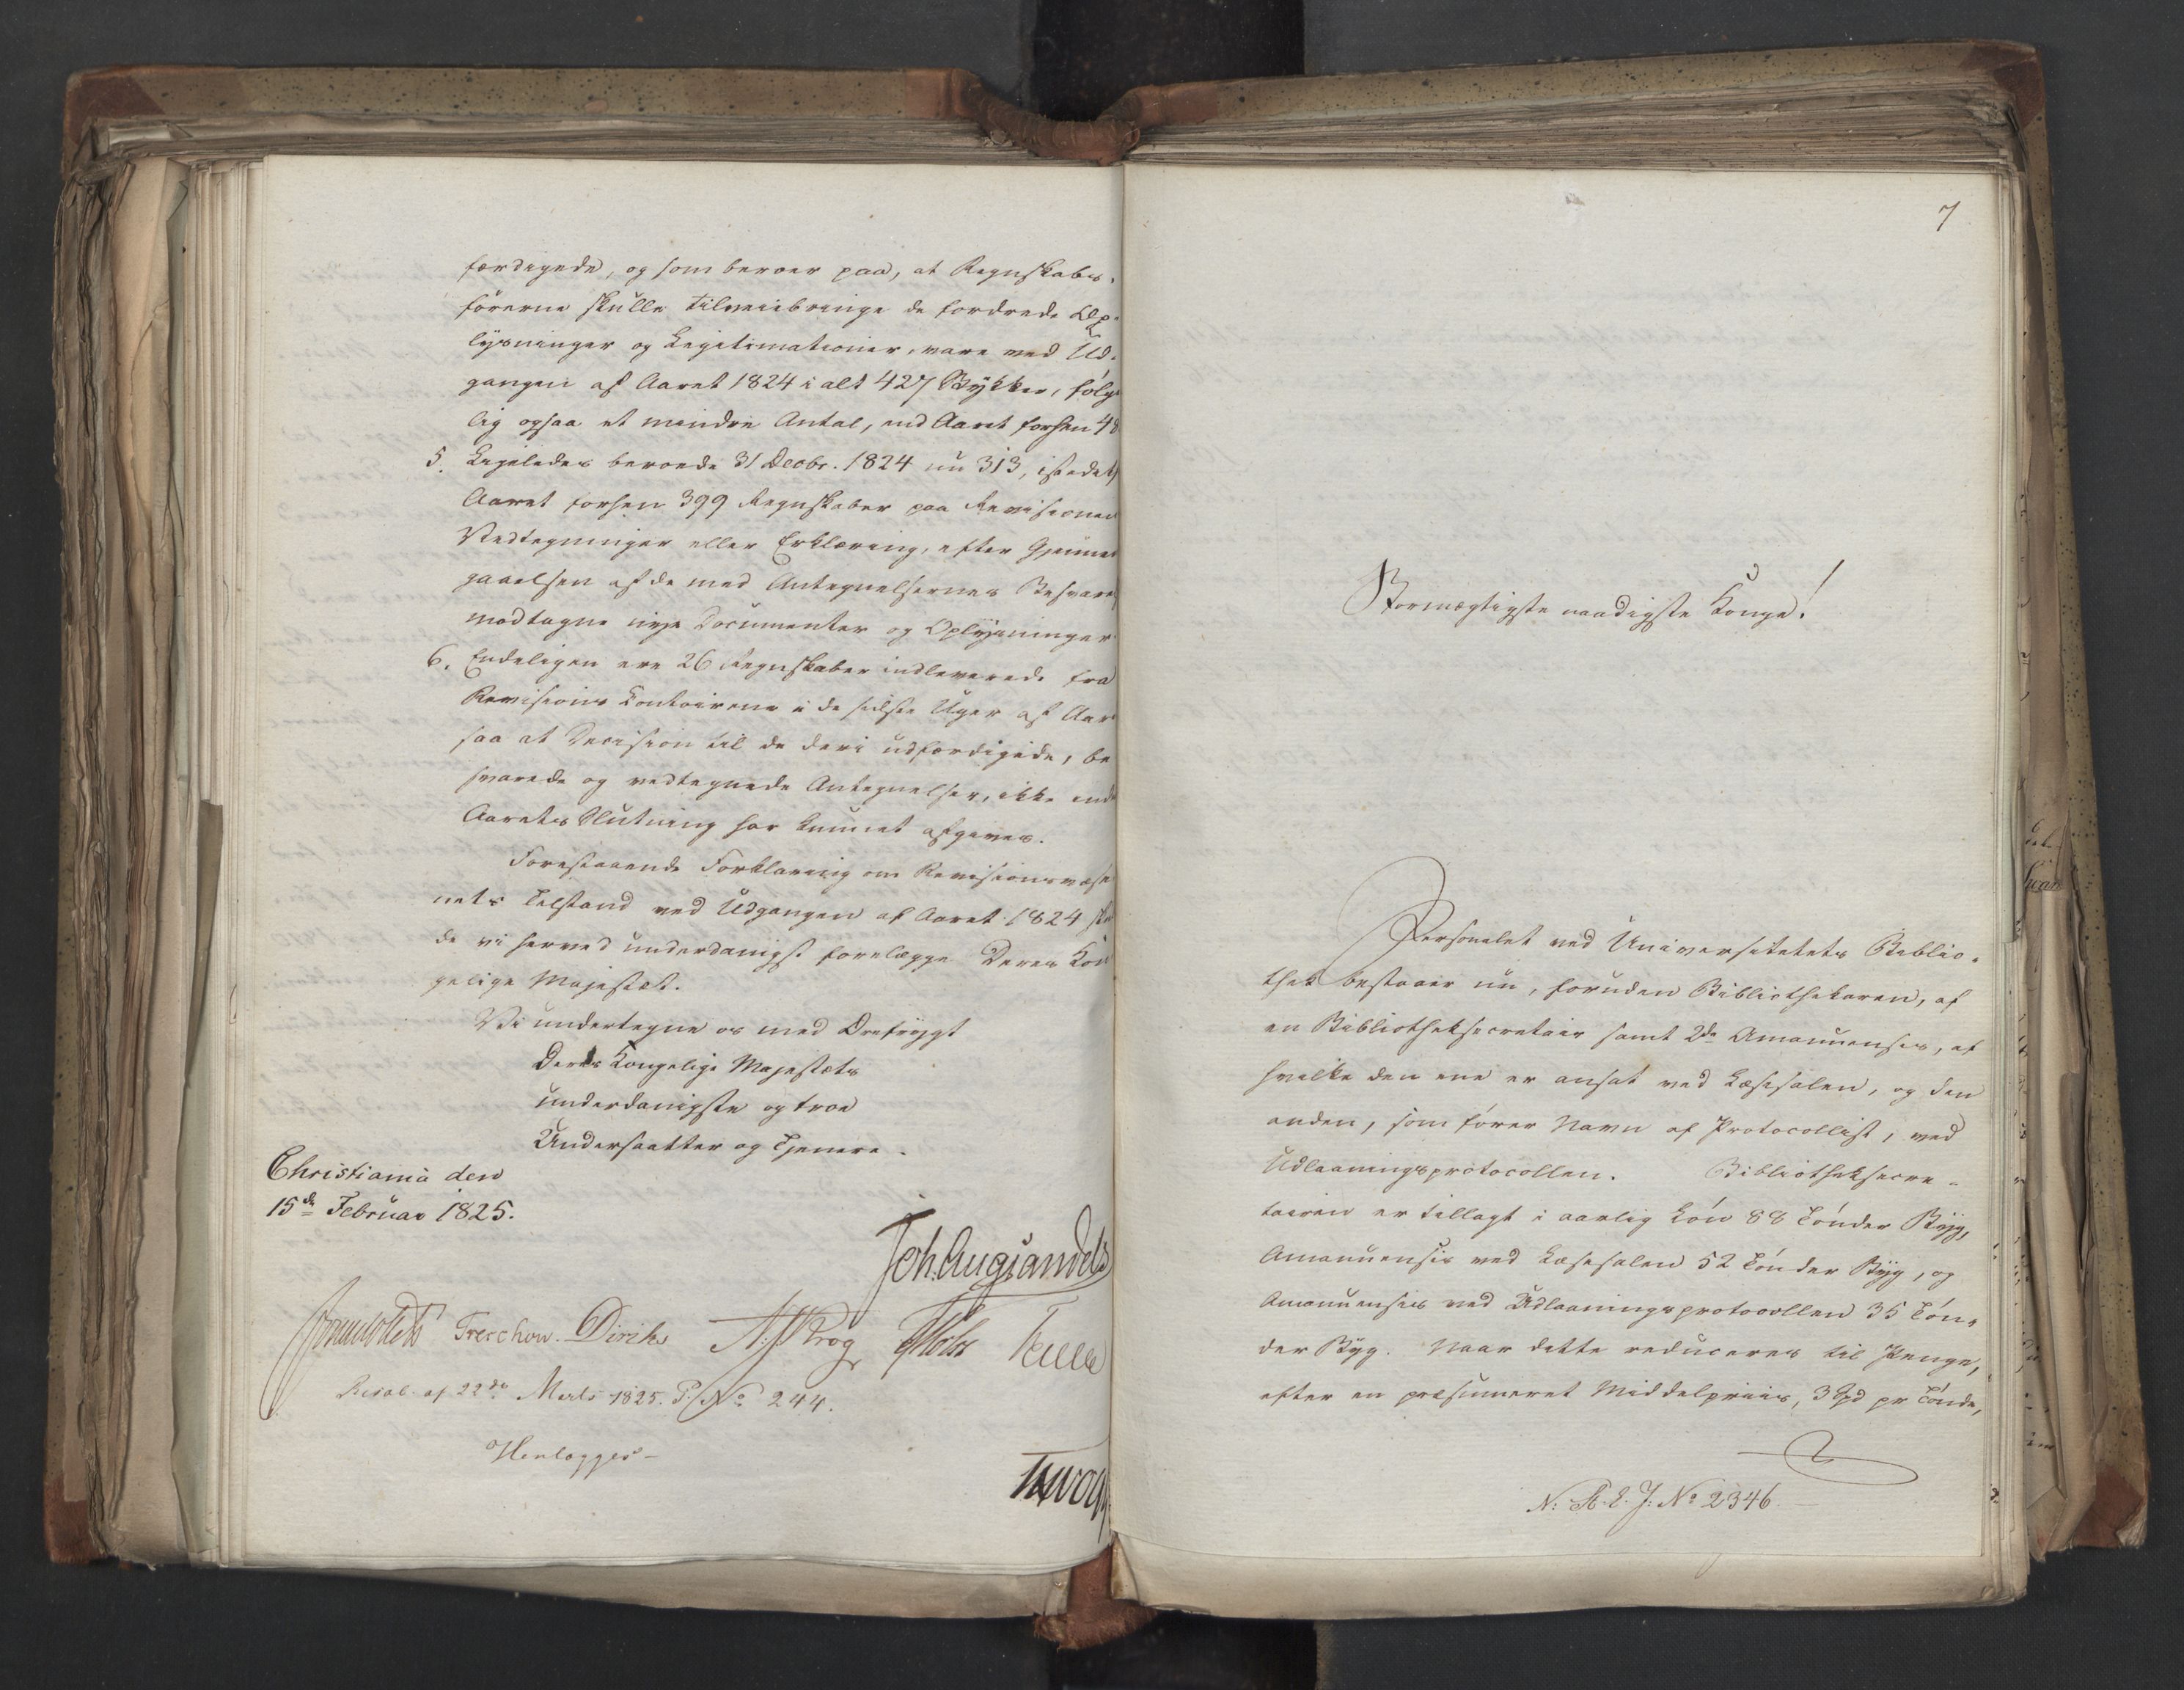 færdigede, og som beroer paa, at Regnskabs-
førerne skulle tilveiebringe de fordrede Op-
lysninger og Legitimationer, vare ved Ud-
gangen af Aaret 1824 i alt 427 Stykker, følge-
lig ogsaa et mindre Antal, end Aaret forhen 48
5. Ligeledes beroede 31 Decbr. 1824 nu 313, istedet
Aaret forhen 399 Regnskaber paa Revisionens
Vedtegninger eller Erklæring, efter Gjennem
gaaelsen af de med Antegnelsernes Besvarel
modtagne nye Documenter og Oplysninger
6. Endeligen ere 26 Regnskaber indleverede fra
Revisions Contoirene i de sidste Uger af Aar
saa at Decision til de deri udfærdigede, be
svarede og vedtegnede Antegnelser, ikke inde
Aarets Slutning har kunnet afgives.
Forestaaende Forklaring om Revisionsvæse
nets Tilstand ved Udgangen af Aaret 1824
de vi herved underdanigst forelægge Deres Kon
gelige Majestæt.
Vi undertegne os med Ærefrygt
Deres Kongelige Majestæts
underdanigste og troe
Undersaatter og Tjenere.
Christiania den
15de Februar 1825.
Joh. Aug: Sandels
Sommerfeldt Treschow. Diriks Krog Holst Fasting
Resol. af 22de Marts 1825. P. No 244.
Henlægges-
7
Stormægtigste naadigste Konge!
Personalet ved Universitetets Biblio-
thek bestaaer nu, foruden Bibliothekaren, af
en Bibliotheksecretair samt 2de Amanuenses, af
hvilke den ene er ansat ved Læsesalen, og den
anden, som fører Navn af Protocollist, ved
Udlaaningsprotocollen. Bibliotheksecre-
tairen er tillagt i aarlig Løn 88 Tønder Byg,
Amanuensis ved Læsesalen 52 Tønder Byg, og
Amanuensis ved Udlaaningsprotocollen 35 Tøn-
der Byg. Naar dette reduceres til Penge,
efter en præsumeret Middelpriis, 3 Spd pr Tønde,
N: R. C. J: No 2346